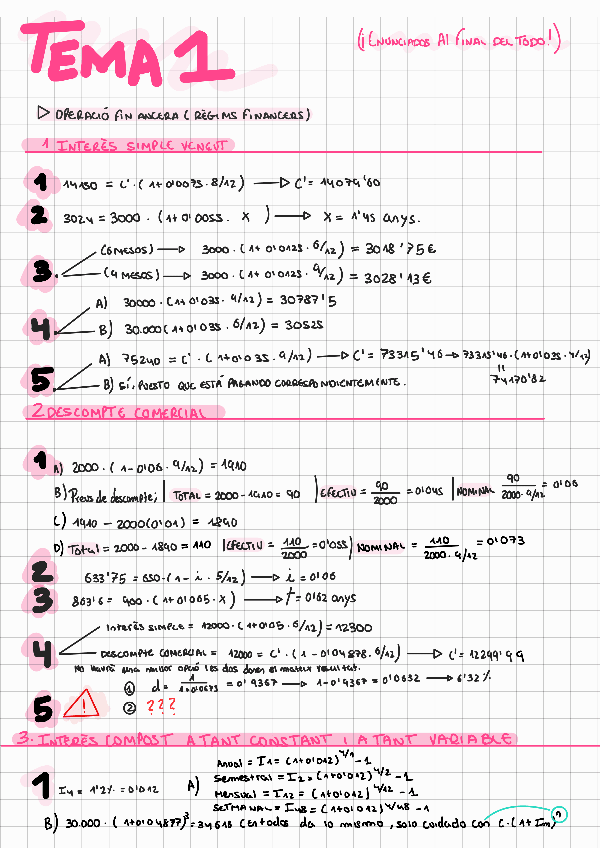 TEMA 1
(¡ENUNCIADOS AL FINAL DEL TODO!)
▷ OPERACIÓ FINANCERA (RÈGIMS FINANCERS)
1 INTERÈS SIMPLE VENÇUT
1 14150 = C' · (1+0'0075 · 8/12) → C' = 14079'60
2 3024 = 3000 · (1+0'0055 · X) → X = 1'45 anys.
3. (6 MESOS) → 3000 · (1+0'0125 · 6/12) = 3018'75€
(9 MESOS) → 3000 · (1+0'0125 · 9/12) = 3028'13€
4. A) 30000 · (1+0'035 · 9/12) = 30787'5
B) 30.000 (1+0'035 · 6/12) = 30525
5. A) 75240 = C' · (1+0'035 · 9/12) → C' = 73315'46 → 73315'46 · (1+0'035 · 4/12)
=
74170'82
B) SÍ, PUESTO QUE ESTÁ PAGANDO CORRESPONDIENTEMENTE.
2 DESCOMPTE COMERCIAL
1 A) 2000 · (1-0'06 · 9/12) = 1910
B) Preus de descompte; | TOTAL = 2000 - 1910 = 90 | EFECTIU = 90/2000 = 0'045 | NOMINAL 90/2000·9/12 = 0'06
C) 1910 - 2000(0'01) = 1890
D) Total = 2000 - 1890 = 110 | EFECTIU = 110/2000 = 0'055 | NOMINAL = 110/2000·9/12 = 0'073
2 633'75 = 650 · (1 - i · 5/12) → i = 0'06
3 863'6 = 900 · (1+0'065 · X) → t = 0'62 anys
4 INTERÈS SIMPLE = 12000 · (1+0'05 · 6/12) = 12300
DESCOMPTE COMERCIAL = 12000 = C' · (1 - 0'04878 · 6/12) → C' = 12299'99
No haurà una millor opció les dos donen el mateix resultat.
5 ! ① d = 1/1+0'0675 = 0'9367 → 1-0'9367 = 0'0632 → 6'32%
② ???
3. INTERÈS COMPOST A TANT CONSTANT I A TANT VARIABLE
1 I4 = 1'2% = 0'012 A) Anual = I1 = (1+0'012)^4/1 - 1
Semestral = I2 = (1+0'012)^4/2 - 1
Mensual = I12 = (1+0'012)^4/12 - 1
SETMANAL = I48 = (1+0'012)^4/48 - 1
B) 30.000 · (1+0'04877)^3 = 34618 (en todos da lo mismo, solo cuidado con C·(1+Im)^n